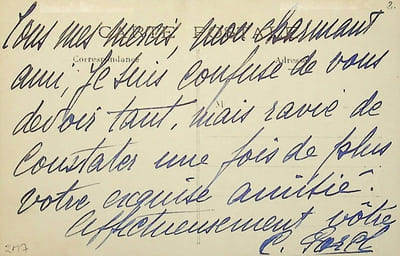 2.
CARTE POSTALE
Tous mes mercis, mon charmant
Correspondance Adresse
ami, Je suis confuse de vous
M
devoir tant, mais ravie de
constater une fois de plus
votre exquise amitié.
Affectueusement vôtre
C. Sorel